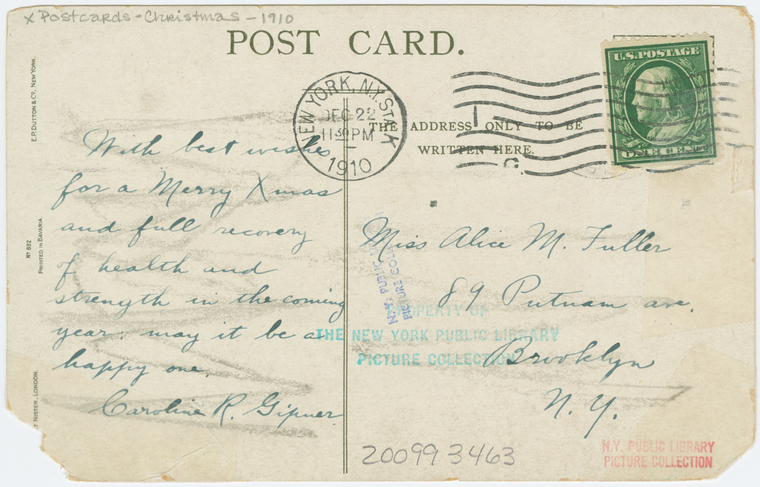 x Postcards - Christmas - 1910
POST CARD.
U.S. POSTAGE
ONE CENT
NEW YORK, N.Y. STA. K
DEC 22
11 30 PM
1910
THE ADDRESS ONLY TO BE
WRITTEN HERE.
With best wishes
for a Merry Xmas
and full recovery
of health and
strength in the coming
year. may it be a
happy one.
Caroline R. Gipner
Miss Alice M. Fuller
89 Putnam ave.
Brooklyn
N. Y.
E. P. DUTTON & CO. NEW YORK.
Nº 682
PRINTED IN BAVARIA
NISTER, LONDON.
N.Y. PUBLIC
PICTURE CO
PROPERTY OF
THE NEW YORK PUBLIC LIBRARY
PICTURE COLLECTION
200993463
N.Y. PUBLIC LIBRARY
PICTURE COLLECTION